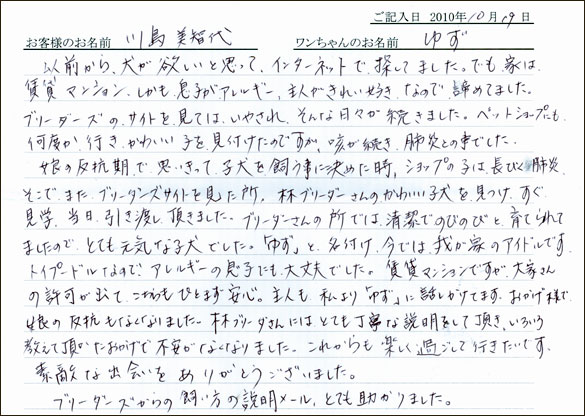 ご記入日 2010年10月19日
お客様のお名前 川島 美智代 ワンちゃんのお名前 ゆず
以前から、犬が欲しいと思って、インターネットで探してました。でも家は、
賃貸マンション、しかも息子がアレルギー、主人がきれい好き、なので諦めてました。
ブリーダーズのサイトを見ては、いやされ、そんな日々が続きました。ペットショップにも
何度か行き、かわいい子を見付けたのですが、咳が続き、肺炎との事でした。
娘の反抗期で思いきって子犬を飼う事に決めた時、ショップの子は長びく肺炎、
そこで、また、ブリーダーズサイトを見た所、林ブリーダーさんのかわいい子犬を見つけ、すぐ
見学、当日、引き渡し頂きました。ブリーダーさんの所では、清潔でのびのびと育てられて
ましたので、とても元気な子犬でした。「ゆず」と名付け、今では、我が家のアイドルです。
トイプードルなのでアレルギーの息子にも大丈夫でした。賃貸マンションですが、大家さん
の許可が出て、こちらもひとまず安心。主人も私より「ゆず」に話しかけてます。おかげ様で
娘の反抗もなくなりました。林ブリーダーさんにはとても丁寧な説明をして頂き、いろいろ
教えて頂いたおかげで不安がなくなりました。これからも楽しく過ごして行きたいです。
素敵な出会いをありがとうございました。
ブリーダーズからの飼い方の説明メール、とても助かりました。